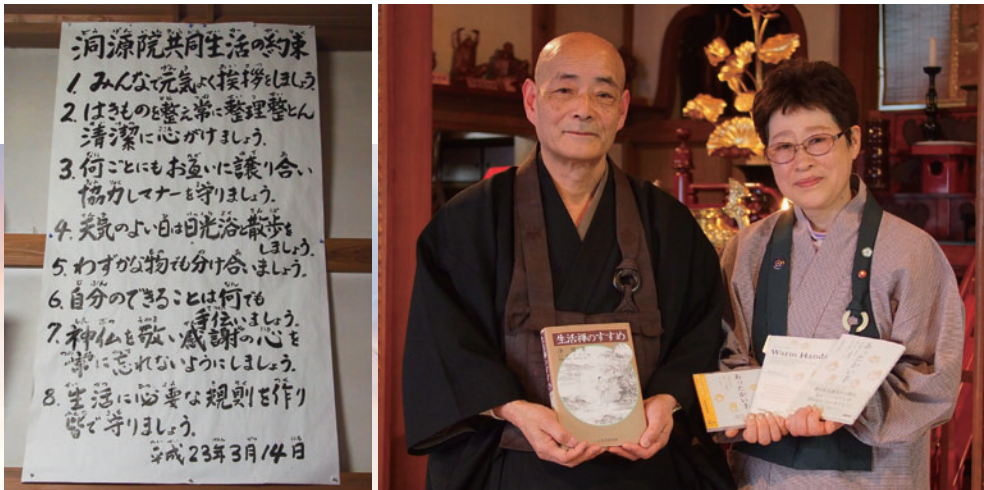 洞源院共同生活の約束
1. みんなで元気よく挨拶をしましょう。
2. はきものを整え常に整理整とん
清潔に心がけましょう。
3. 何ごとにもお互いに譲り合い
協力しマナーを守りましょう。
4. 天気のよい日は日光浴と散歩を
しましょう。
5. わずかな物でも分け合いましょう。
6. 自分のできることは何でも
手伝いましょう。
7. 神仏を敬い感謝の心を
常に忘れないようにしましょう。
8. 生活に必要な規則を作り
皆で守りましょう。
平成23年3月14日
生活禅のすすめ
あったかい手
Warm Hands